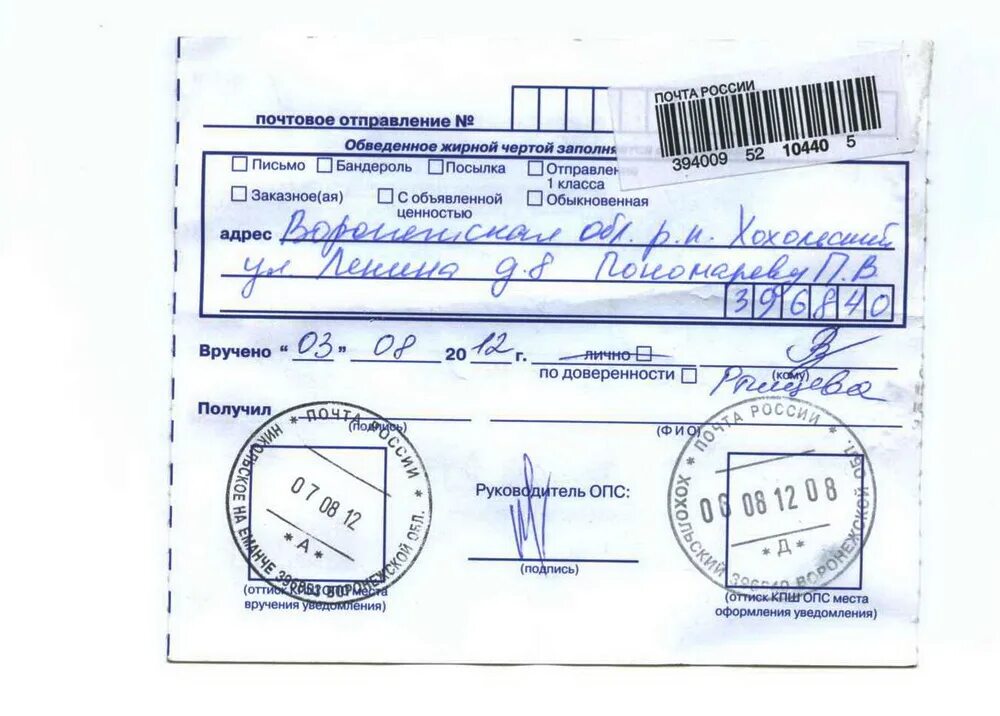 ПОЧТА РОССИИ
394009 52 10440 5
почтовое отправление №
Обведенное жирной чертой заполня
Письмо Бандероль Посылка Отправлен
1 класса
Заказное(ая) С объявленной ценностью Обыкновенная
адрес Воронежская обл. р.н. Хохольский
ул Ленина д.8 Пономареву П.В.
396840
Вручено "03" 08 2012 г. лично
(кому)
по доверенности Рыльцева
Получил
(подпись) (ФИО)
ПОЧТА РОССИИ
НИКОЛЬСКОЕ НА ЕМАНЧЕ 396853 ВОРОНЕЖСКОЙ ОБЛ.
07 08 12
* А *
Руководитель ОПС:
(подпись)
ПОЧТА РОССИИ
ХОХОЛЬСКИЙ 396840 ВОРОНЕЖСКОЙ ОБЛ.
06 08 12 08
* Д *
(оттиск КПШ ОПС места
вручения уведомления)
(оттиск КПШ ОПС места
оформления уведомления)